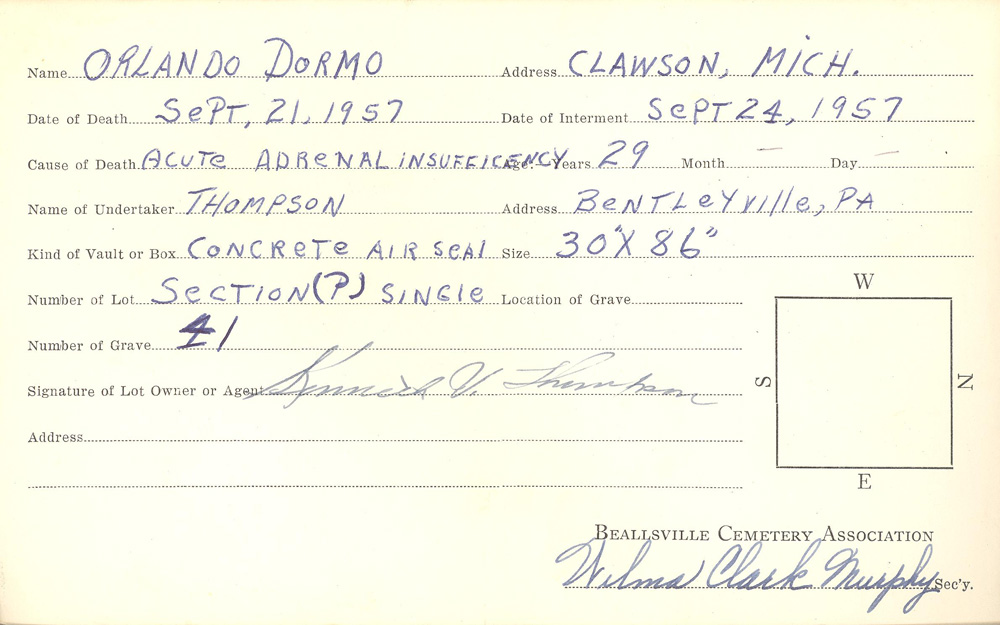 Name ORLANDO DORMO Address CLAWSON, MICH.
Date of Death SePT, 21, 1957 Date of Interment SePT 24, 1957
Cause of Death ACUTe ADReNAL iNSUFFICENCY Age: Years 29 Month — Day —
Name of Undertaker THOMPSON Address BeNTLeYville, PA
Kind of Vault or Box CONCReTe AIR SeAl Size 30"X 86"
Number of Lot SeCTION (P) SiNGle Location of Grave
W
Number of Grave 41
Signature of Lot Owner or Agent Kenneth V. Thompson
S N
Address
E
BEALLSVILLE CEMETERY ASSOCIATION
Wilma Clark Murphy Sec'y.